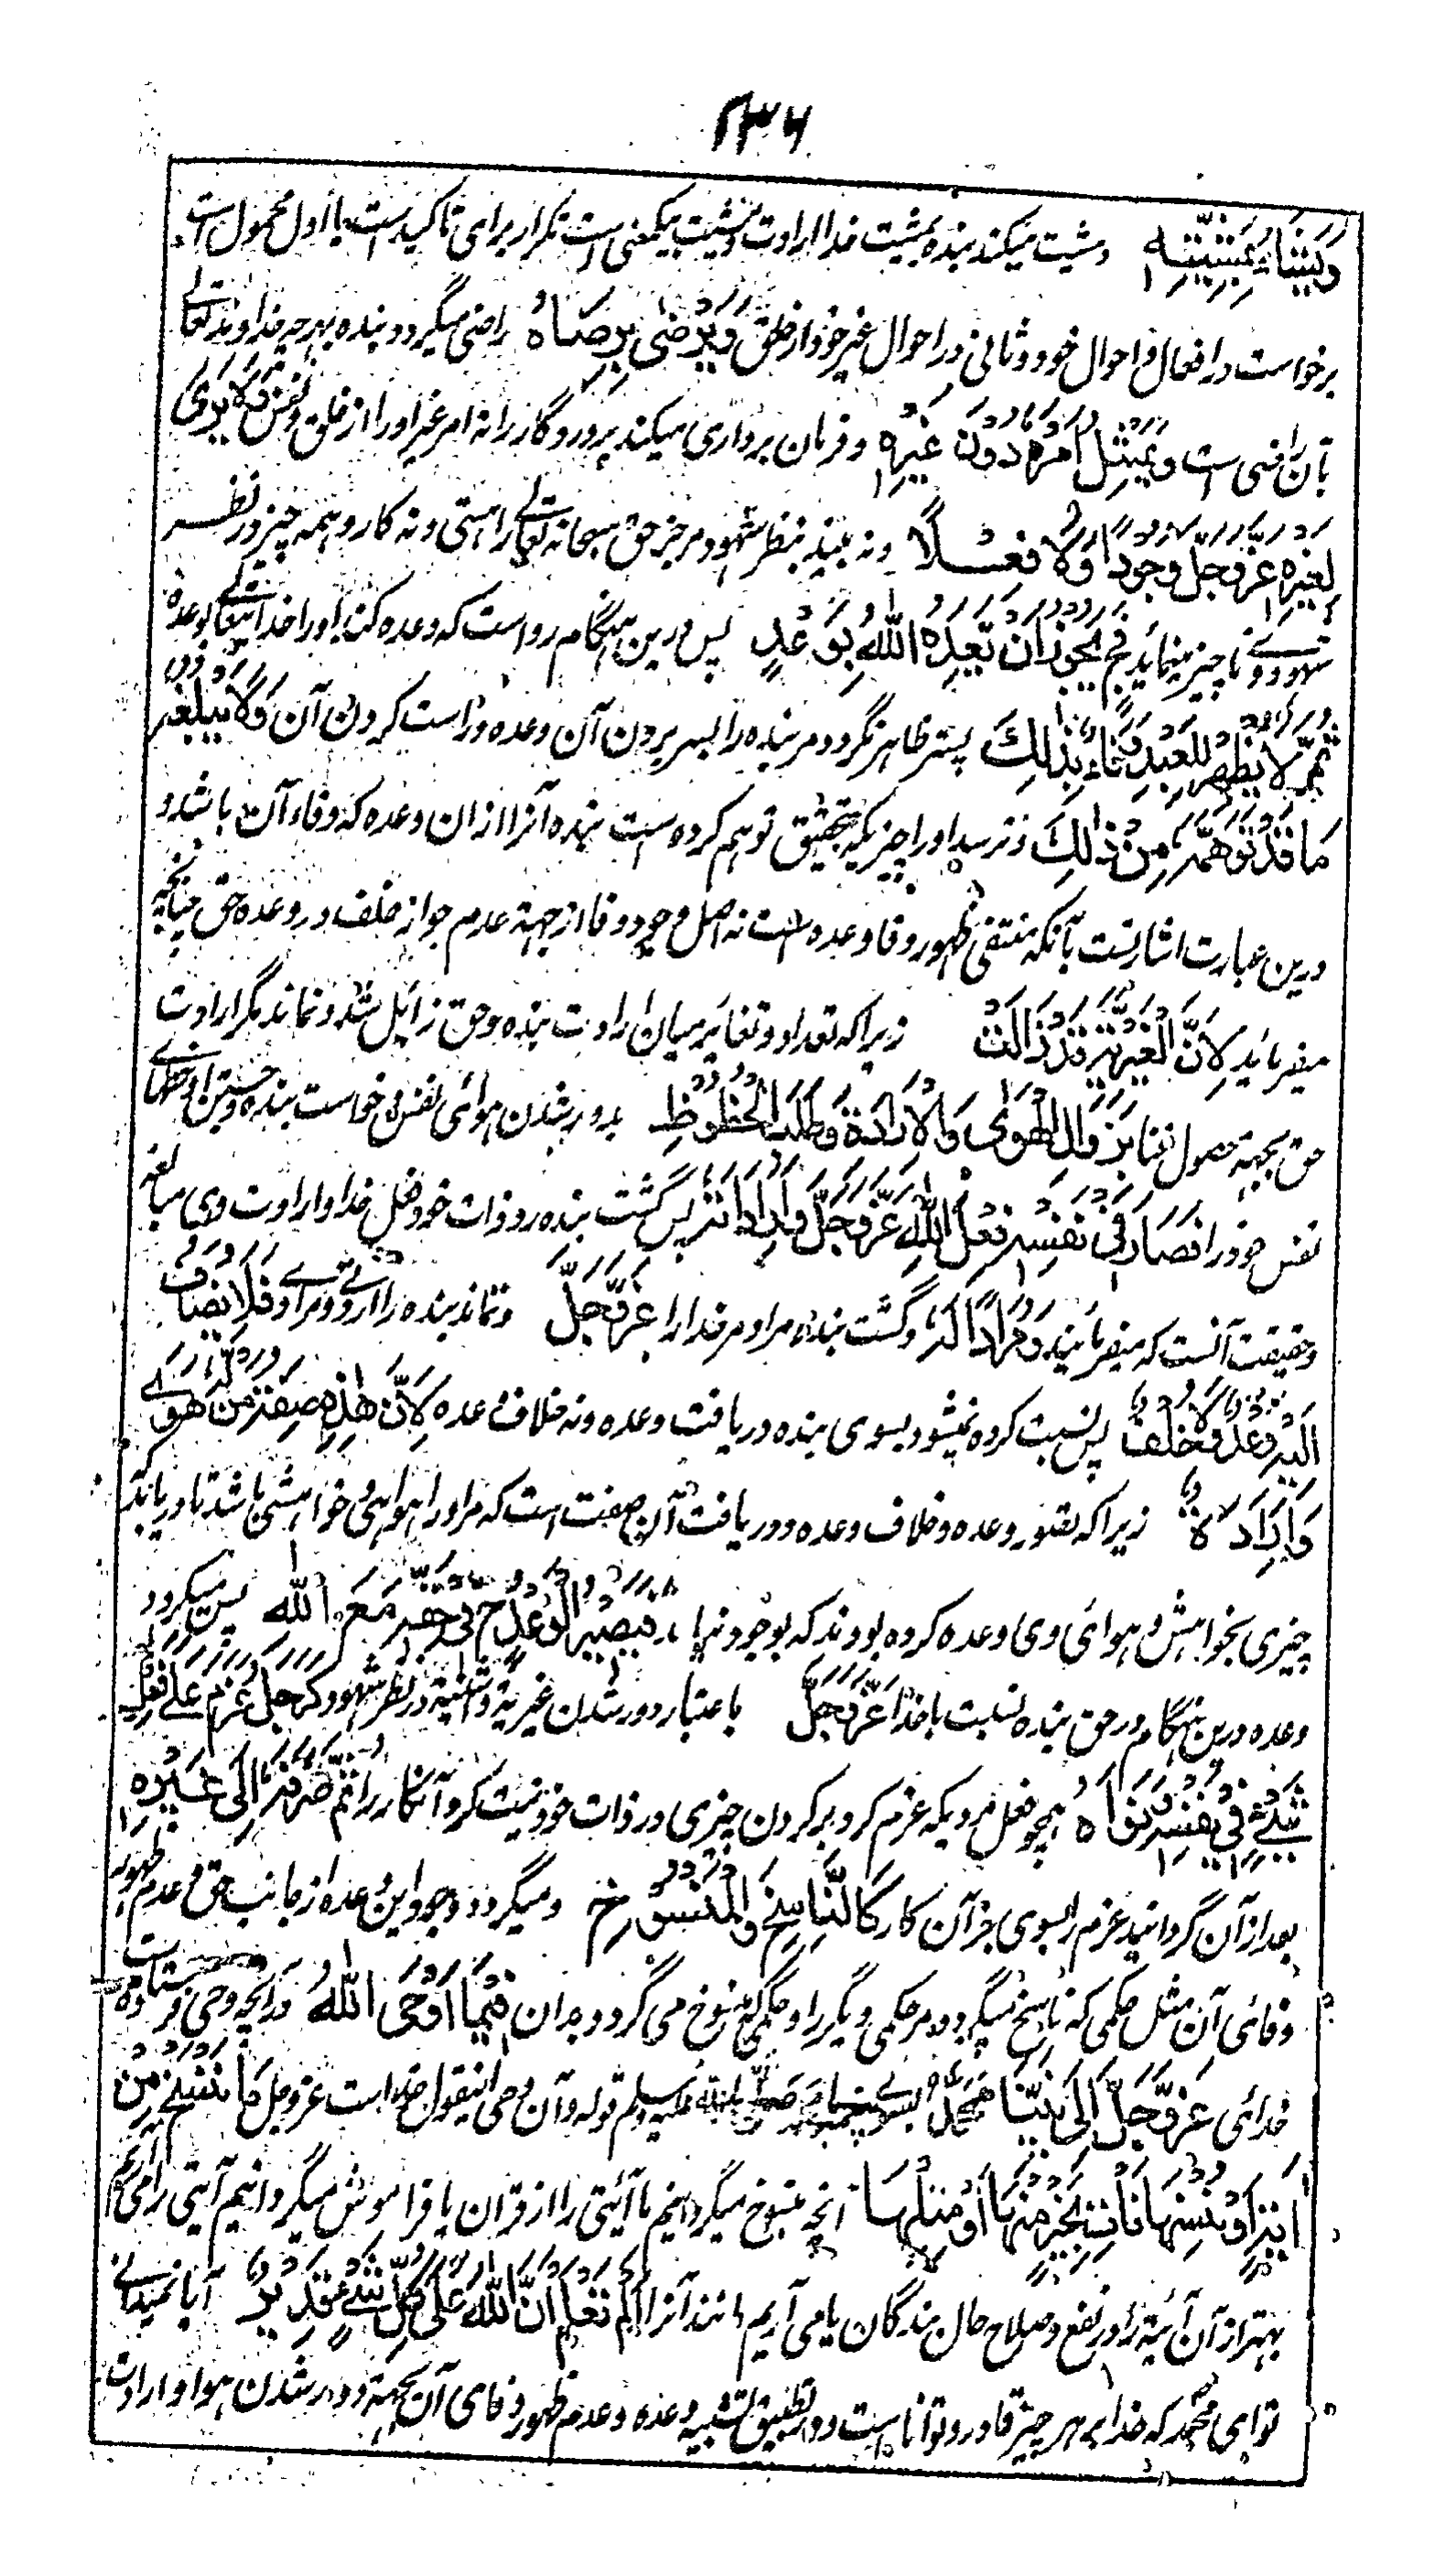 ۲۳۶
وَيَشَاءُ بِمَشِيَّتِهِ ومشیت میکند بنده بمشیت خدا ارادت ومشیت بیکمعنی است تکرار برای تاکیدست یا اول محمول است
برخواست در افعال و احوال خود و ثانی در احوال غیر خود از خلق وَيَرْضٰى بِرِضَاهُ راضی میگردد بنده بهر چه خداوند تعالے
بآن راضی است وَيَمْتَثِلُ اَمْرَهٗ دُوْنَ غَيْرِهٖ و فرمان برداری میکند پروردگار را نه امر غیر او را از خلق و نفس وَلَا يَرٰى
لِغَيْرِهٖ عَزَّوَجَلَّ وُجُوْدًا وَّلَا فِعْلًا ونه بیند بنظر شهود مر جز حق سبحانه تعالے را هستی و نه کار و همه چیز در نظر
شهود وے ناچیز مینماید فَحِ يَجُوْزُ اَنْ يَّعِدَهُ اللّٰهُ بِوَعْدٍ پس درین هنگام رواست که وعده کند او را خدایتعالے بوعدهٔ
ثُمَّ لَا يَظْهَرُ لِلْعَبْدِ وَفَاءٌ بِذٰلِكَ پستر ظاهر نگردد مر بنده را بسر بردن آن وعده و راست کردن آن وَلَا يَبْلُغُهٗ
مَا قَدْ تَوَهَّمَهٗ مِنْ ذٰلِكَ و نرسد او را چیزیکه بتحقیق توهم کرده ست بنده آنرا ازان وعده که وفاء آن باشد و
درین عبارت اشارتست بآنکه منتفی ظهور وفا وعده ست نه اصل وجود وفا از جهة عدم جواز خلف در وعده حق چنانچه
میفرماید لِاَنَّ الْغَيْرِيَّةَ قَدْ زَالَتْ زیرا که تعداد و تغایر میان ارادت بنده و حق زایل شد و نماند مگر ارادت
حق بجهة حصول فنا بِزَوَالِ الْهَوٰى وَالْاِرَادَةِ وَطَلَبِ الْحُظُوْظِ بدور شدن هوائی نفس و خواست بنده و جستن او حظهای
نفس خود را فَصَارَ فِيْ نَفْسِهٖ فِعْلَ اللّٰهِ عَزَّوَجَلَّ وَاِرَادَتَهٗ پس گشت بنده در ذات خود فعل خدا و ارادت وی مبالغه
وحقیقت آنست که میفرمایند وَمُرَادًا لَهٗ وگشت بنده مراد مر خدا را عَزَّوَجَلَّ ونماند بنده را ارادتی و مرادے فَلَا يُضَافُ
اِلَيْهِ وَعْدٌ وَّلَا خُلْفٌ پس نسبت کرده نمیشود بسوی بنده دریافت وعده ونه خلاف وعده لِاَنَّ هٰذِهٖ صِفَةُ مَنْ لَّهٗ هَوًى
وَّاِرَادَةٌ زیرا که تصور وعده و خلاف وعده و دریافت آن صفت است که مر او را هوائی و خواهشی باشد تا دریابد که
چیزی بخواهش و هوائی وی وعده کرده بودند که بوجود نیامد فَيَصِيْرُ الْوَعْدُ حِ فِيْ حَقِّهٖ مَعَ اللّٰهِ پس میگردد
وعده درین هنگام در حق بنده نسبت باخدا عَزَّوَجَلَّ باعتبار دور شدن غیریة و اثنینیة در نظر شهود كَرَجُلٍ عَزَمَ عَلٰى فِعْلِ
شَيْءٍ فِيْ نَفْسِهٖ وَنَوَاهُ همچو فعل مردیکه عزم کرد بر کردن چیزی در ذات خود و نیت کرد آنکار را ثُمَّ صَرَفَهٗ اِلٰى غَيْرِهٖ
بعد ازآن گردانید عزم را بسوی جز آن کار كَالنَّاسِخِ وَالْمَنْسُوْخِ ومیگردد وجود این وعده از جانب حق و عدم ظهور
وفائی آن مثل حکمی که ناسخ میگردد مر حکمی دیگر را و حکمی که منسوخ می گردد بدان فِيْمَا اَوْحَى اللّٰهُ در آنچه وحی فرستاده ست
خدائی عَزَّوَجَلَّ اِلٰى نَبِيِّنَا مُحَمَّدٍ بسوی پیغمبر ما محمد صلی الله علیه وسلم قوله و آن وحی اینقول خداست عزوجل مَا نَنْسَخْ مِنْ
اٰيَةٍ اَوْ نُنْسِهَا نَاْتِ بِخَيْرٍ مِّنْهَا اَوْ مِثْلِهَا آنچه منسوخ میگردانیم ما آیتی را از قرآن یا فراموش میگردانیم آیتی را می آریم
بهتر ازآن آیة را در نفع و صلاح حال بندگان یا می آریم مانند آنرا اَلَمْ تَعْلَمْ اَنَّ اللّٰهَ عَلٰى كُلِّ شَيْءٍ قَدِيْرٌ آیا نمیدانی
تو ای محمد که خدا بر هر چیز قادر و تواناست و در تطبیق تشبیه وعده و عدم ظهور وفای آن بجهة دور شدن هوا و ارادت